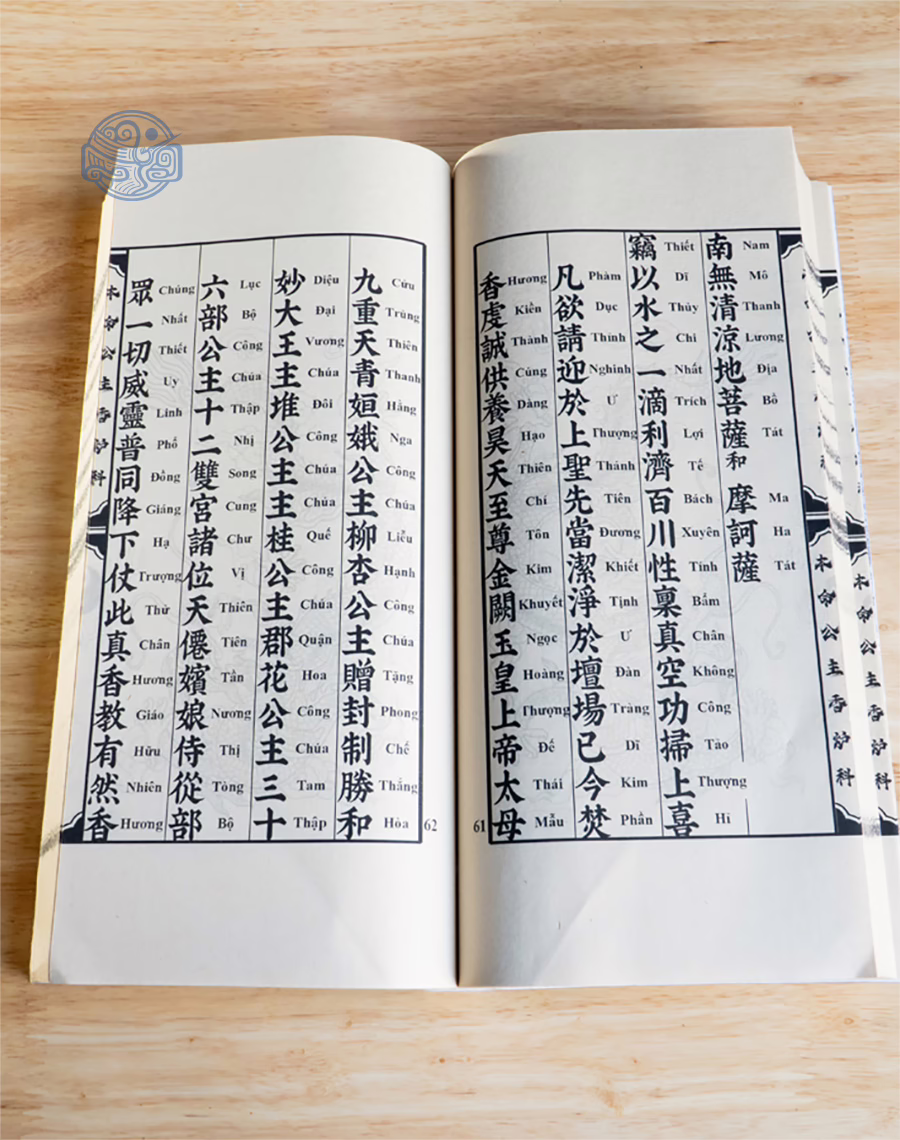 南無清涼地菩薩和摩訶薩
Nam Mô Thanh Lương Địa Bồ Tát Ma Ha Tát
竊以水之一滴利濟百川性稟真空功掃上喜
Thiết Dĩ Thủy Chi Nhất Trích Lợi Tế Bách Xuyên Tính Bẩm Chân Không Công Tảo Thượng Hỉ
凡欲請迎於上聖先當潔淨於壇場已今焚
Phàm Dục Thỉnh Nghinh Ư Thượng Thánh Tiên Đương Khiết Tịnh Ư Đàn Tràng Dĩ Kim Phần
香虔誠供養昊天至尊金闕玉皇上帝太母
Hương Kiền Thành Cúng Dàng Hạo Thiên Chí Tôn Kim Khuyết Ngọc Hoàng Thượng Đế Thái Mẫu
61
九重天青姮娥公主柳杏公主贈封制勝和
Cửu Trùng Thiên Thanh Hằng Nga Công Chúa Liễu Hạnh Công Chúa Tặng Phong Chế Thắng Hòa
妙大王主堆公主主桂公主郡花公主三十
Diệu Đại Vương Chúa Đôi Công Chúa Chúa Quế Công Chúa Quận Hoa Công Chúa Tam Thập
六部公主十二雙宮諸位天僊嬪娘侍從部
Lục Bộ Công Chúa Thập Nhị Song Cung Chư Vị Thiên Tiên Tần Nương Thị Tòng Bộ
眾一切威靈普同降下仗此真香教有然香
Chúng Nhất Thiết Uy Linh Phổ Đồng Giáng Hạ Trượng Thử Chân Hương Giáo Hữu Nhiên Hương
62
木命公主香炉科
木命公主香炉科
木命公主香炉科